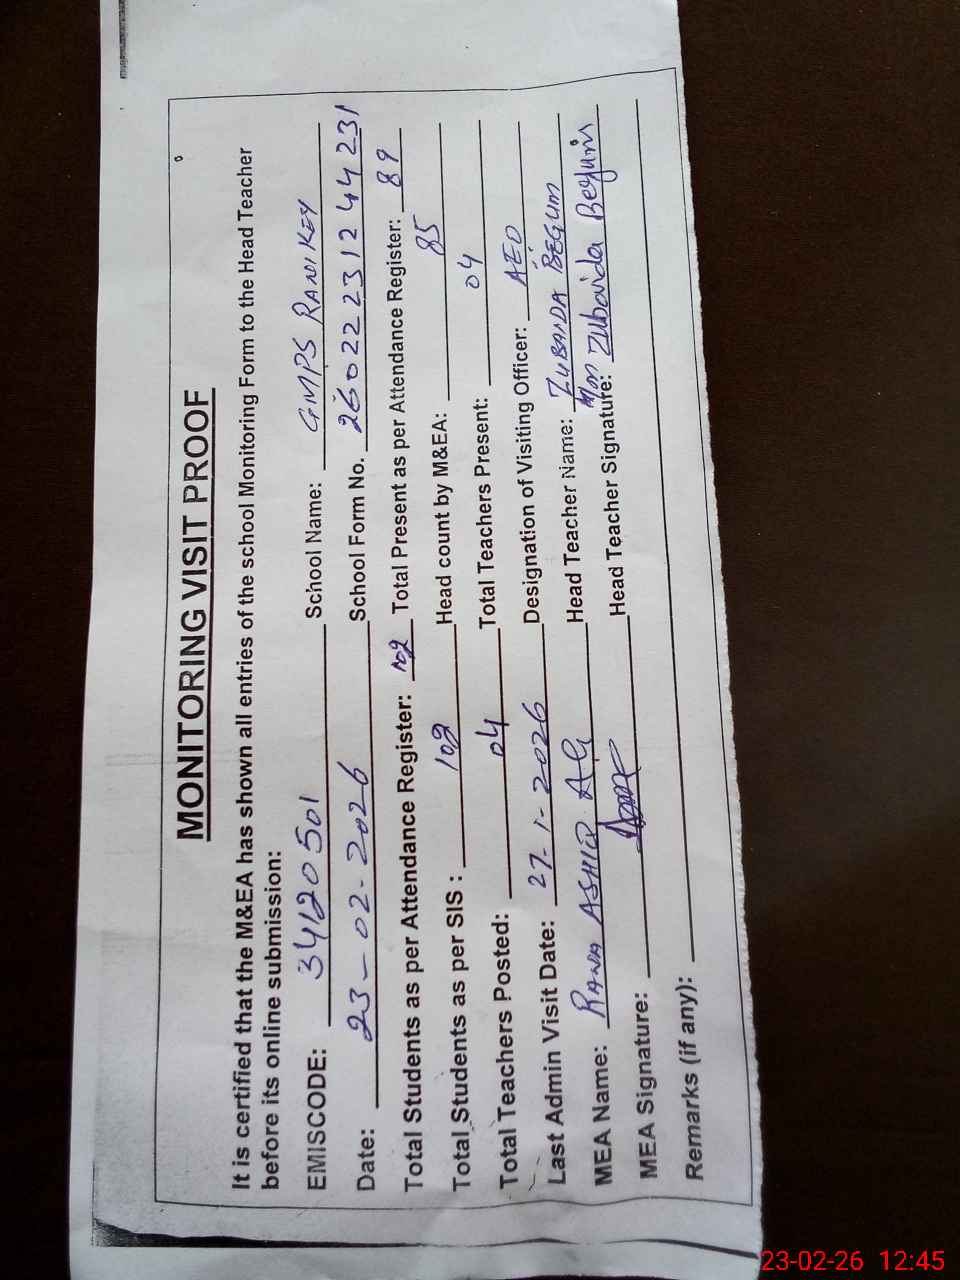 MONITORING VISIT PROOF
It is certified that the M&EA has shown all entries of the school Monitoring Form to the Head Teacher
before its online submission:
EMISCODE: 34120501 School Name: GMPS RANDIKEY
Date: 23-02-2026 School Form No. 26022231244231
Total Students as per Attendance Register: 102 Total Present as per Attendance Register: 89
Total Students as per SIS : 102 Head count by M&EA: 85
Total Teachers Posted: 04 Total Teachers Present: 04
Last Admin Visit Date: 27-1-2026 Designation of Visiting Officer: AEO
MEA Name: RANA ASHIQ ALI Head Teacher Name: ZUBAIDA BEGUM
MEA Signature: Head Teacher Signature: Mrs Zubaida Begum
Remarks (if any):
23-02-26 12:45